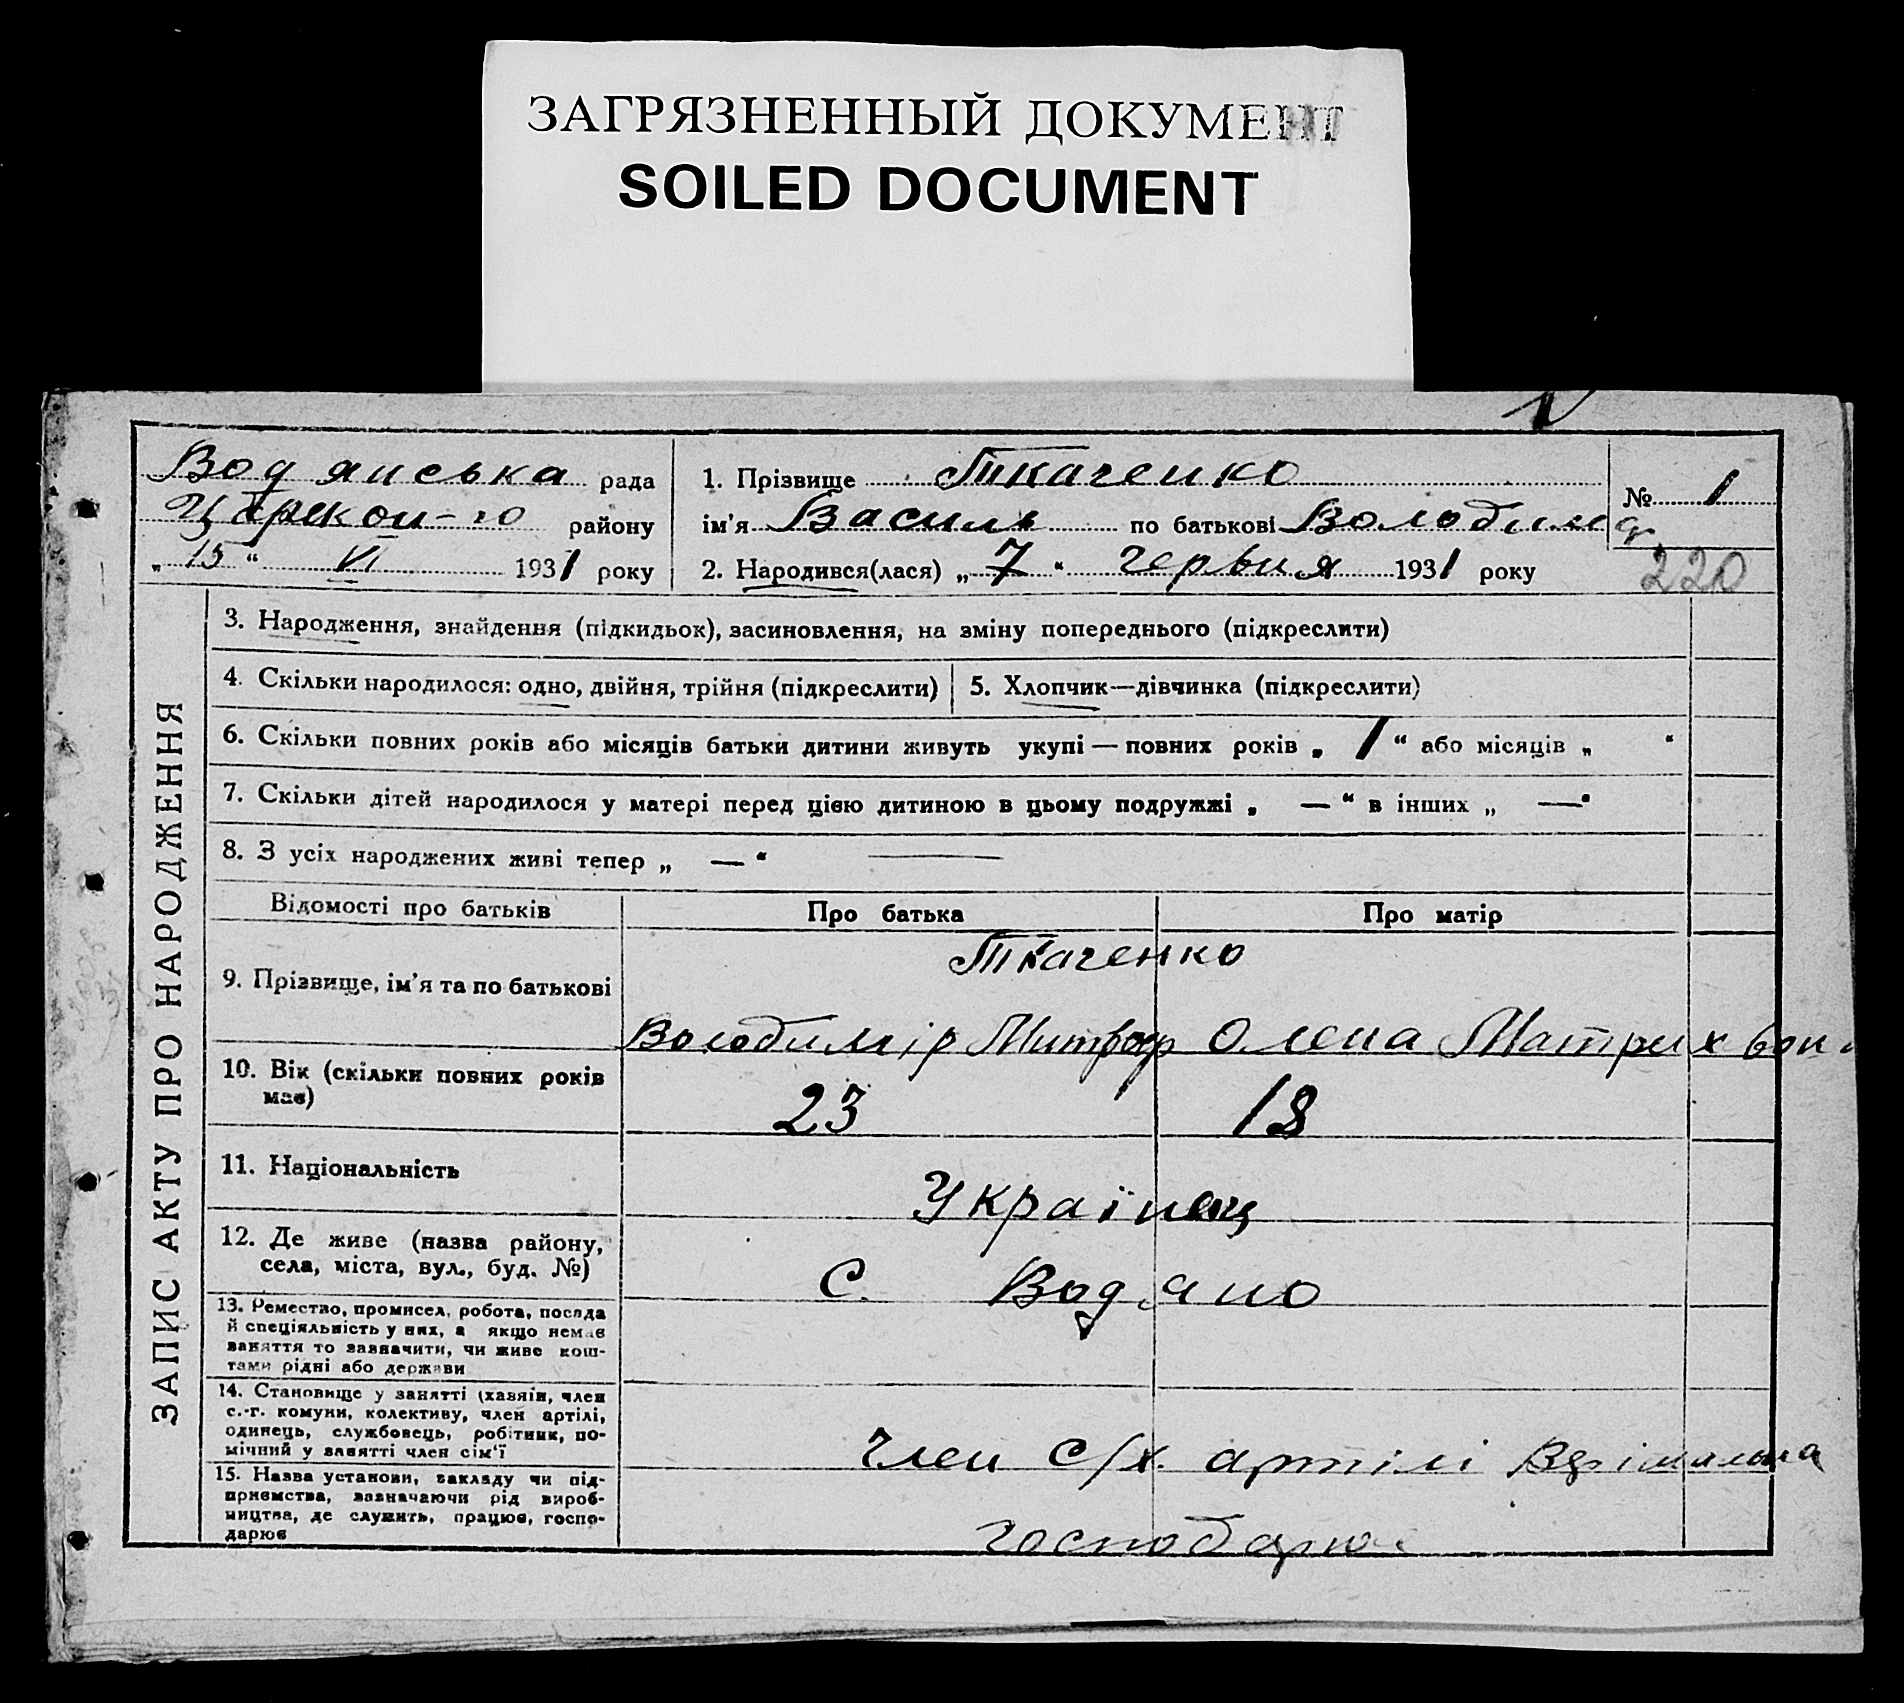 ЗАГРЯЗНЕННЫЙ ДОКУМЕНТ
SOILED DOCUMENT
Водянська рада
Царекон-го району
„ 15 “ VI 1931 року
1. Прізвище Ткаченко
ім'я Василь по батькові Володимир
2. Народився(лася) „ 7 “ червня 1931 року
№ 1
220
ЗАПИС АКТУ ПРО НАРОДЖЕННЯ
3. Народження, знайдення (підкидьок), засиновлення, на зміну попереднього (підкреслити)
4. Скільки народилося: одно, двійня, трійня (підкреслити)
5. Хлопчик—дівчинка (підкреслити)
6. Скільки повних років або місяців батьки дитини живуть укупі — повних років „ 1 “ або місяців „ “
7. Скільки дітей народилося у матері перед цією дитиною в цьому подружжі „ — “ в інших „ — “
8. З усіх народжених живі тепер „ — “
Відомості про батьків
Про батька
Про матір
9. Прізвище, ім'я та по батькові
Ткаченко
Володимір Митроф Олена
10. Вік (скільки повних років
має)
23
18
11. Національність
Українец
12. Де живе (назва району,
села, міста, вул., буд. №)
С. Водяно
13. Ремество, промисел, робота, посада
й спеціяльність у них, а якщо немає
заняття то зазначити, чи живе кош-
тами рідні або держави
14. Становище у занятті (хазяїн, член
с.-г. комуни, колективу, член артілі,
одинець, службовець, робітник, по-
мічний у занятті член сім'ї
член с/х. артілі
15. Назва установи, закладу чи під-
приємства, зазначаючи рід вироб-
ництва, де служить, працює, госпо-
дарює
господарює